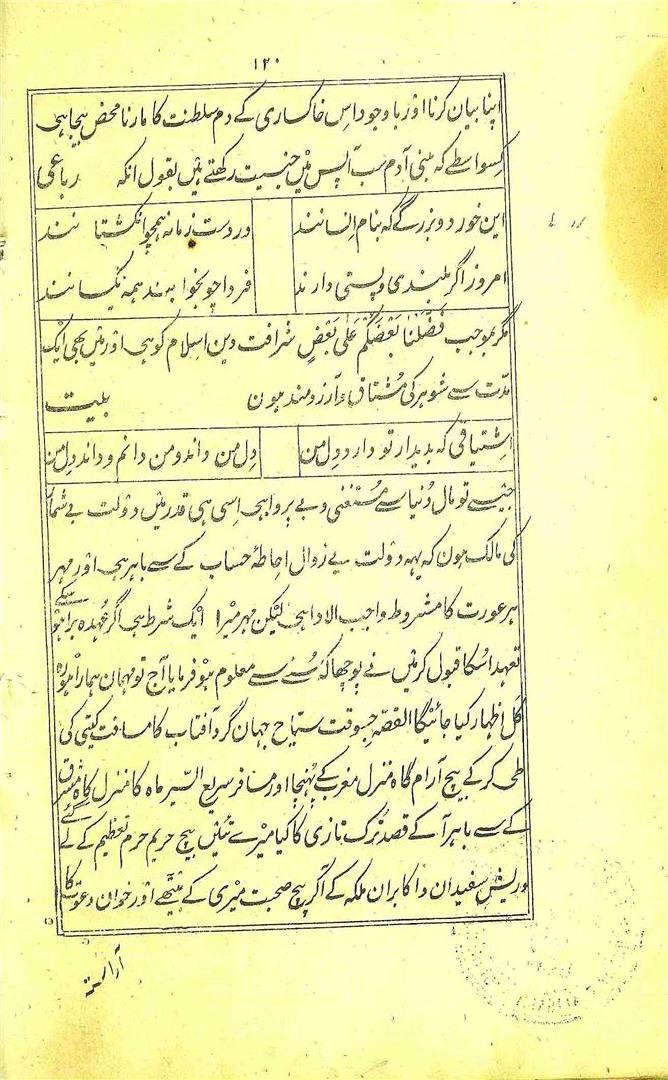 ۱۲۰
اپنا بیان کرنا اور با وجود اس خاکساری کے دم سلطنت کا مارنا محض بیجا ہی
کسواسطے کہ بنی آدم سب آپس مین جنسیت رکھتے ہین بقول انکہ رباعی
این خورد و بزرگے کہ بنام انسانند در دست زمانہ ہمچو انگشتانند
امروز اگر بلندی و پستی دارند فردا چو بخوابند ہمہ یکسانند
مگر بموجب فَضَّلْنَا بَعْضَكُمْ عَلٰی بَعْضٍ شرافت دین اسلام کو ہی اور مین بھی ایک
مدّت سے شوہر کی مشتاق و آرزومند ہون بیت
اشتیاقی کہ بدیدار تو دارد دل من دل من داند و من دانم و داند دل من
جیسے تو مال دُنیا سے مستغنی و بے پروا ہی اِسی ہی قدر مین دولت بے شمار
کی مالک ہون کہ یہہ دولت بے زوال احاطۂ حساب کے سے باہر ہی اور مہر
ہر عورت کا مشروط واجب الادا ہی لیکن مہر میرا ایک شرط ہی اگر عُہدہ برا ہو سکے
تعہد اُسکا قبول کر مین نے پوچھا کہ سُنے سے معلوم ہو فرمایا آج تو مہمان ہمارا ہو
کل اظہار کیا جائیگا القصّہ جسوقت سیّاح جہان گرد آفتاب کا مسافت گیتی کی
طی کر کے بیچ آرام گاہ منزل مغرب کے پہنچا اور مسافر سریع السّیر ماہ کا منزل گاہ مشرق
کے سے باہر آ کے قصد تُرک تازی کا کیا میرے تئین بیچ حریم حرم تعظیم کے لے گئے
و ریش سفیدان و اکابران ملکہ کے آ کر بیچ صحبت میری کے بیٹھے اور خوان دعوت کا
آراستہ